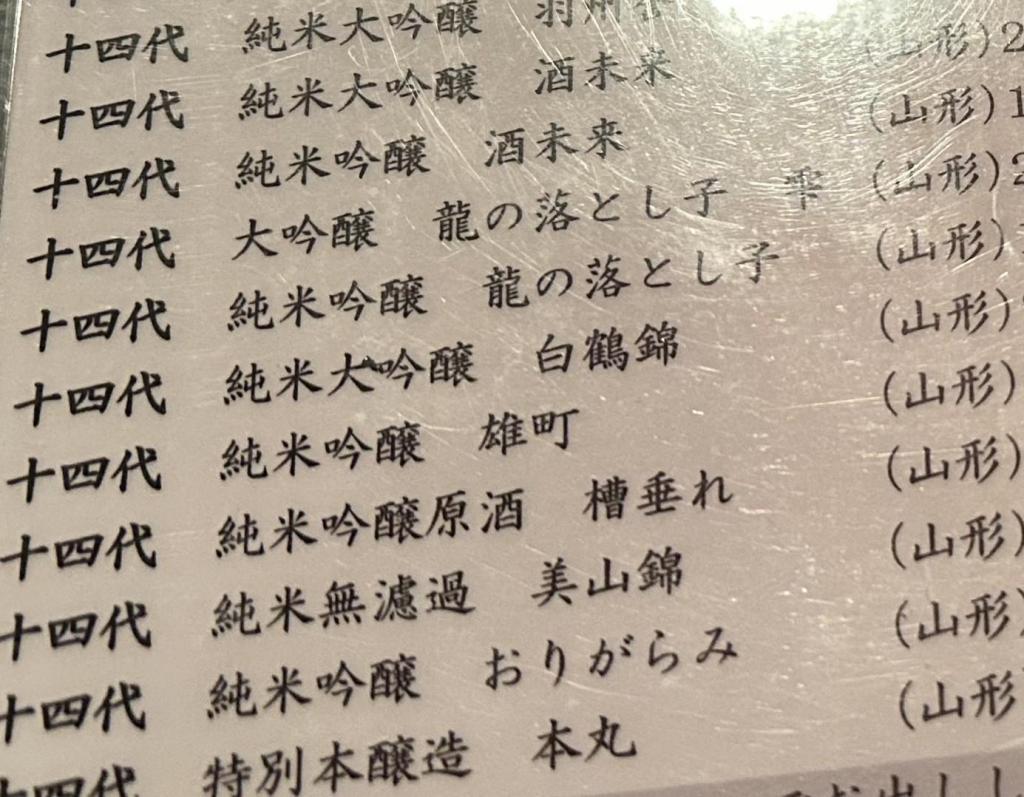 十四代 純米大吟醸 羽州
十四代 純米大吟醸 酒未来 (山形)2
十四代 純米吟醸 酒未来 (山形)1
十四代 大吟醸 龍の落とし子 雫 (山形)2
十四代 純米吟醸 龍の落とし子 (山形)
十四代 純米大吟醸 白鶴錦 (山形)
十四代 純米吟醸 雄町 (山形)
十四代 純米吟醸原酒 槽垂れ (山形)
十四代 純米無濾過 美山錦 (山形)
十四代 純米吟醸 おりがらみ (山形)
十四代 特別本醸造 本丸 (山形
お出しし